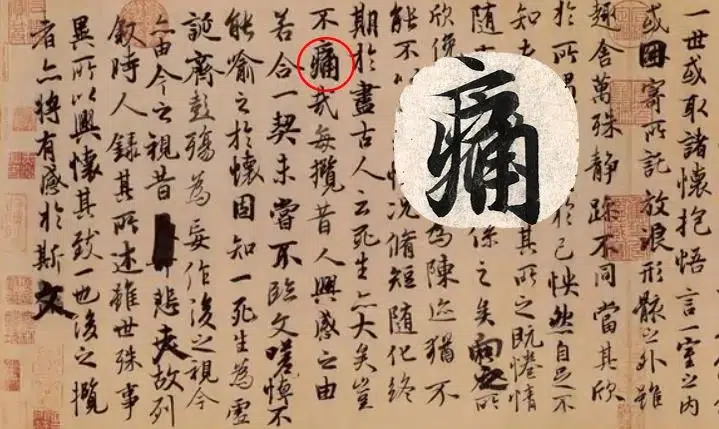 一世或取諸懷抱悟言一室之內
或因寄所託放浪形骸之外雖
趣舍萬殊靜躁不同當其欣
於所遇於己怏然自足不
知老其所之既惓情
隨事係之矣向之所
欣俛為陳迹猶不
能不以況脩短隨化終
期於盡古人云死生亦大矣豈
不痛哉每攬昔人興感之由
若合一契未嘗不臨文嗟悼不
能喻之於懷固知一死生為虛
誕齊彭殤為妄作後之視今
亦由今之視昔悲夫故列
敘時人錄其所述雖世殊事
異所以興懷其致一也後之攬
者亦將有感於斯文
痛